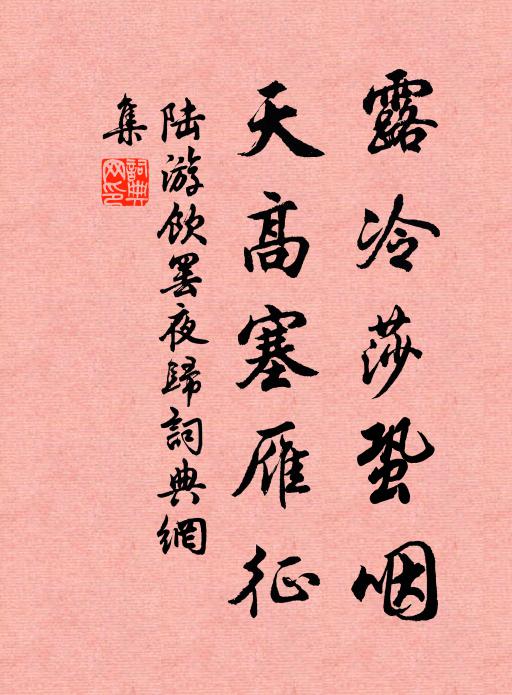 露冷莎蛩咽
天高塞雁征
陆游饮罢夜歸詞典網
集
詞典
网印